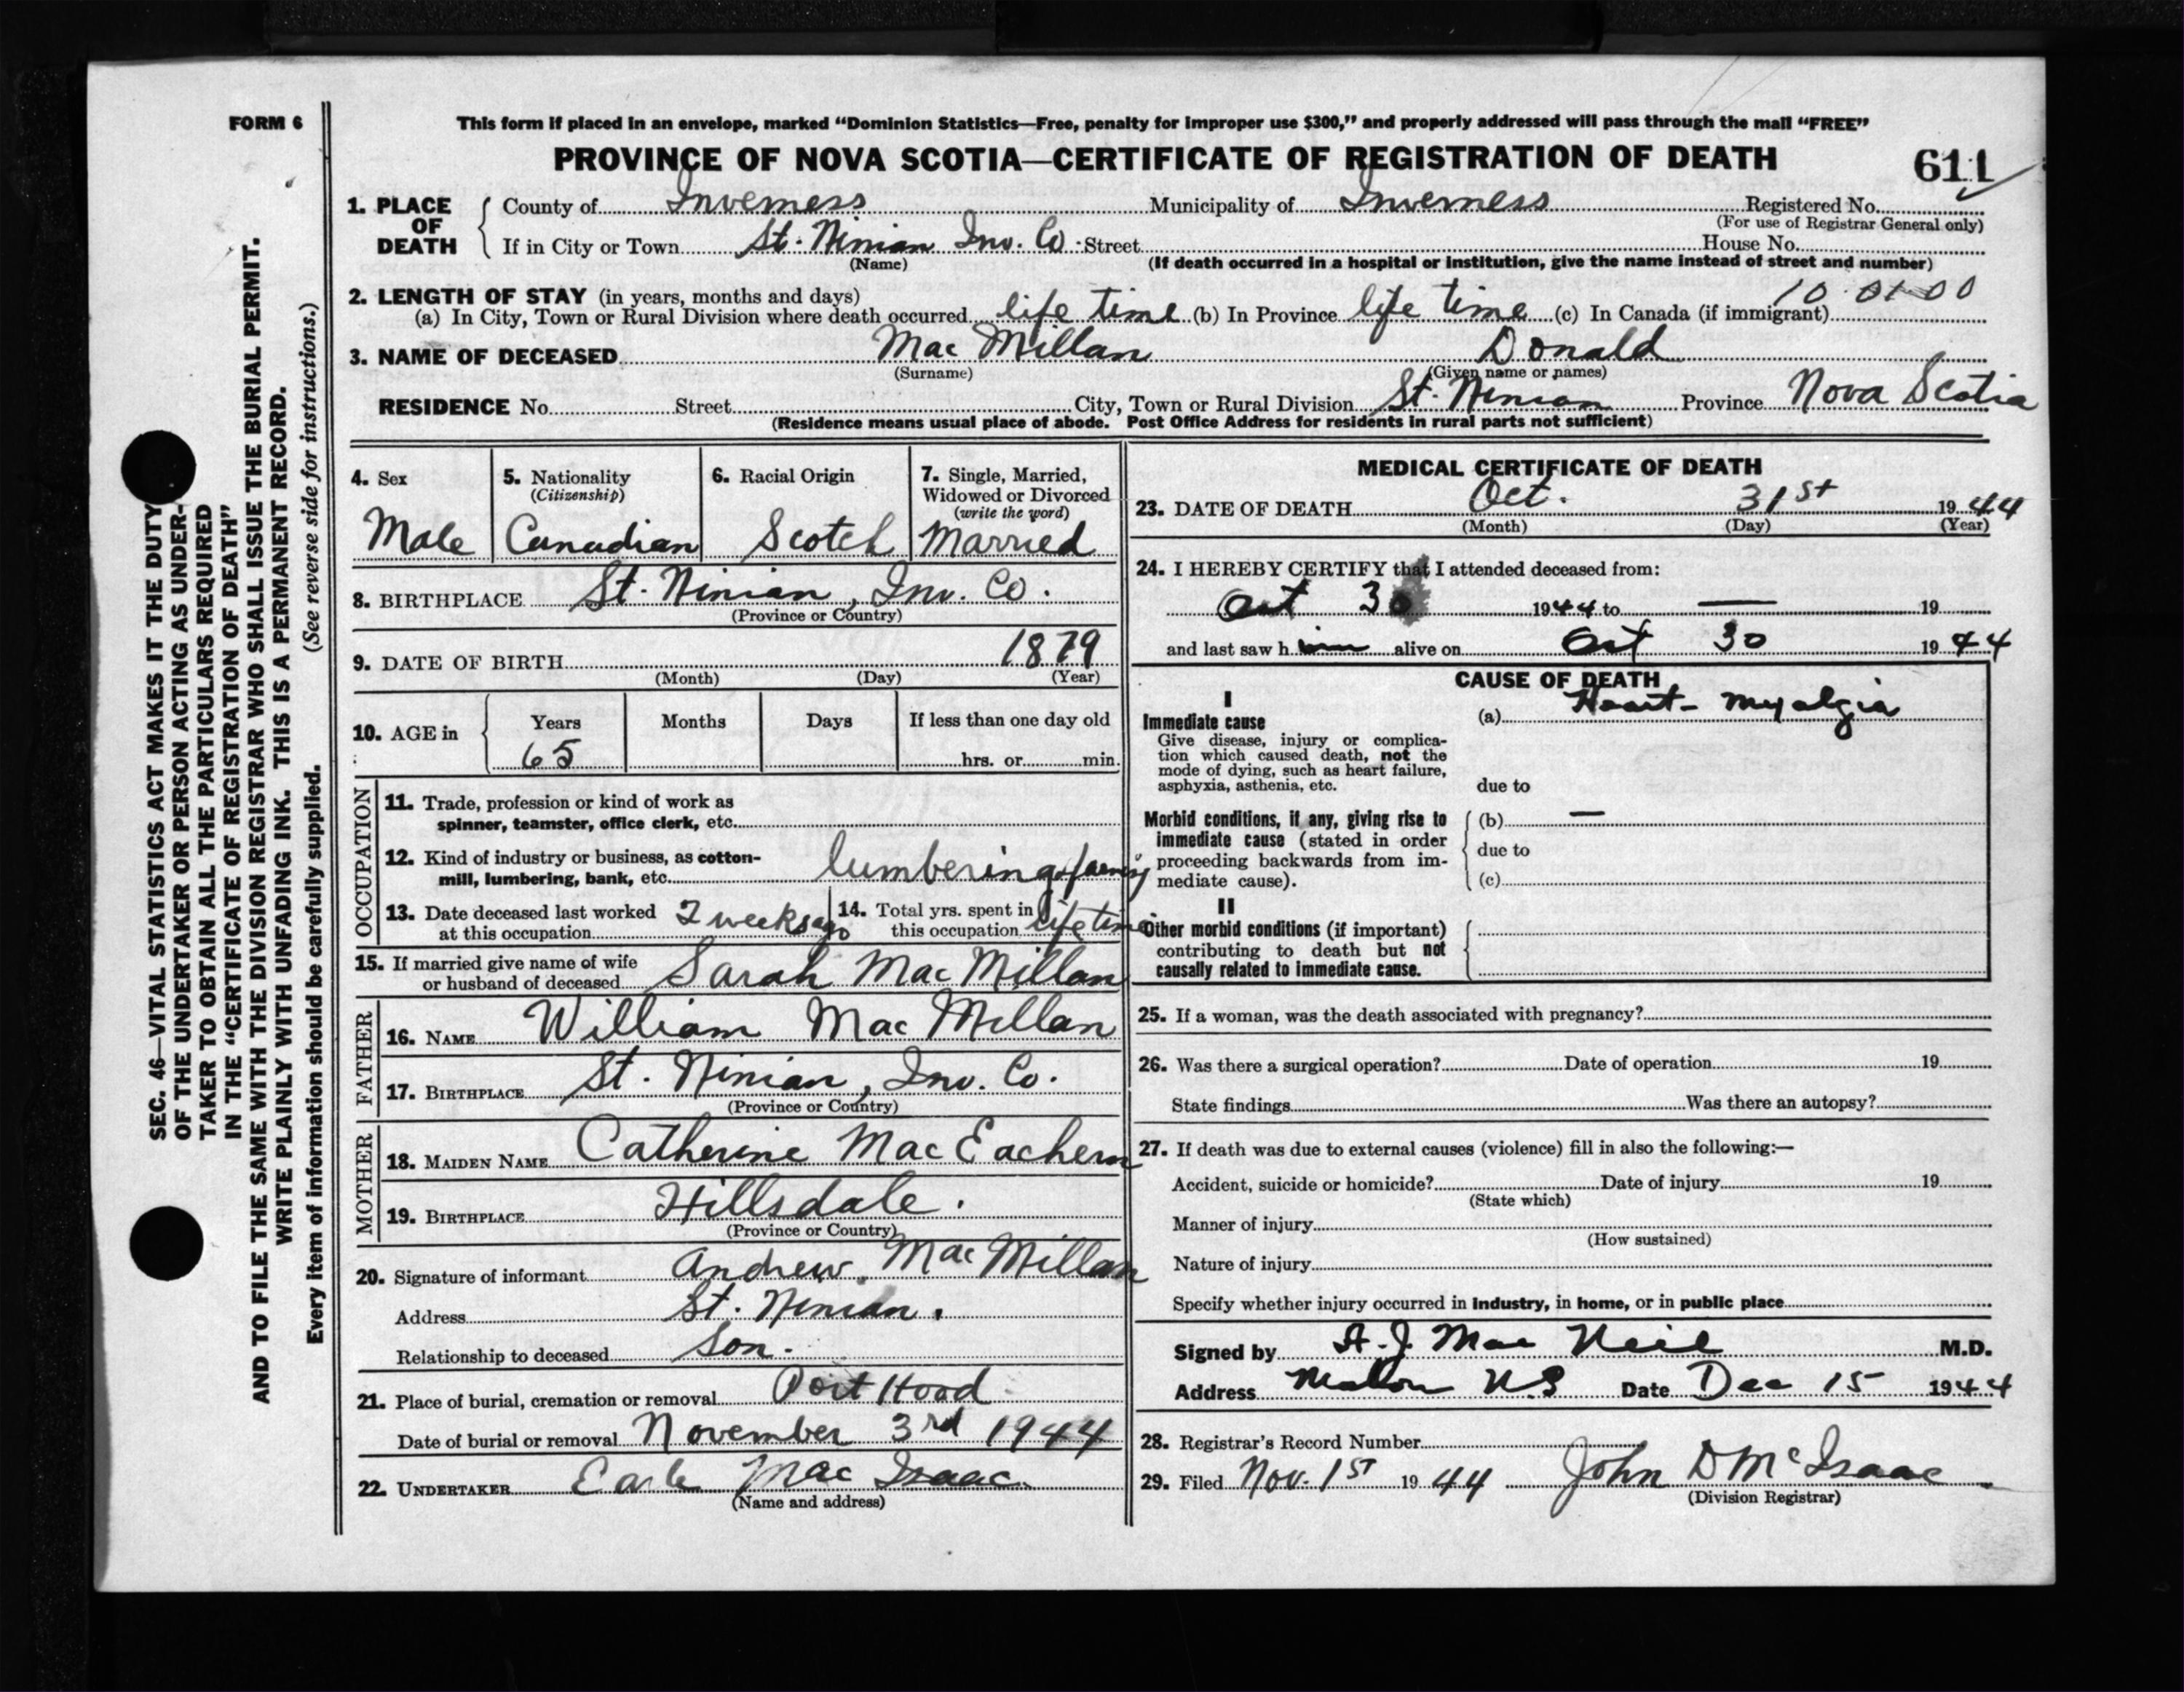 FORM 6
This form if placed in an envelope, marked "Dominion Statistics—Free, penalty for improper use $300," and properly addressed will pass through the mail "FREE"
PROVINCE OF NOVA SCOTIA—CERTIFICATE OF REGISTRATION OF DEATH
611
1. PLACE OF DEATH
County of Inverness Municipality of Inverness Registered No.
(For use of Registrar General only)
If in City or Town St. Ninian Inv. Co. Street House No.
(Name) (If death occurred in a hospital or institution, give the name instead of street and number)
2. LENGTH OF STAY (in years, months and days) 10 01 00
(a) In City, Town or Rural Division where death occurred life time (b) In Province life time (c) In Canada (if immigrant)
3. NAME OF DECEASED Mac Millan Donald
(Surname) (Given name or names)
RESIDENCE No. Street City, Town or Rural Division St. Ninian Province Nova Scotia
(Residence means usual place of abode. Post Office Address for residents in rural parts not sufficient)
4. Sex
Male
5. Nationality
(Citizenship)
Canadian
6. Racial Origin
Scotch
7. Single, Married,
Widowed or Divorced
(write the word)
Married
8. BIRTHPLACE St. Ninian, Inv. Co.
(Province or Country)
9. DATE OF BIRTH 1879
(Month) (Day) (Year)
10. AGE in
Years Months Days If less than one day old
65 hrs. or min.
OCCUPATION
11. Trade, profession or kind of work as
spinner, teamster, office clerk, etc.
12. Kind of industry or business, as cotton-
mill, lumbering, bank, etc. lumbering & farming
13. Date deceased last worked
at this occupation 2 weeks ago
14. Total yrs. spent in
this occupation life time
15. If married give name of wife
or husband of deceased Sarah Mac Millan
FATHER
16. NAME William Mac Millan
17. BIRTHPLACE St. Ninian, Inv. Co.
(Province or Country)
MOTHER
18. MAIDEN NAME Catherine Mac Eachern
19. BIRTHPLACE Hillsdale.
(Province or Country)
20. Signature of informant Andrew Mac Millan
Address St. Ninian.
Relationship to deceased Son.
21. Place of burial, cremation or removal Port Hood
Date of burial or removal November 3rd 1944
22. UNDERTAKER Earle Mac Isaac
(Name and address)
MEDICAL CERTIFICATE OF DEATH
23. DATE OF DEATH Oct. 31st 1944
(Month) (Day) (Year)
24. I HEREBY CERTIFY that I attended deceased from:
Oct 30 1944 to — 19
and last saw him alive on Oct 30 1944
CAUSE OF DEATH
I
Immediate cause
Give disease, injury or complica-
tion which caused death, not the
mode of dying, such as heart failure,
asphyxia, asthenia, etc.
(a) Heart- Myalgia
due to
Morbid conditions, if any, giving rise to
immediate cause (stated in order
proceeding backwards from im-
mediate cause).
(b) —
due to
(c)
II
Other morbid conditions (if important)
contributing to death but not
causally related to immediate cause.
25. If a woman, was the death associated with pregnancy?
26. Was there a surgical operation? Date of operation 19
State findings Was there an autopsy?
27. If death was due to external causes (violence) fill in also the following:—
Accident, suicide or homicide? Date of injury 19
(State which)
Manner of injury
(How sustained)
Nature of injury
Specify whether injury occurred in industry, in home, or in public place
Signed by A. J. Mac Neil M.D.
Address Mabou N.S Date Dec 15 1944
28. Registrar's Record Number
29. Filed Nov. 1st 1944 John D McIsaac
(Division Registrar)
SEC. 46—VITAL STATISTICS ACT MAKES IT THE DUTY
OF THE UNDERTAKER OR PERSON ACTING AS UNDER-
TAKER TO OBTAIN ALL THE PARTICULARS REQUIRED
IN THE "CERTIFICATE OF REGISTRATION OF DEATH"
AND TO FILE THE SAME WITH THE DIVISION REGISTRAR WHO SHALL ISSUE THE BURIAL PERMIT.
WRITE PLAINLY WITH UNFADING INK. THIS IS A PERMANENT RECORD.
Every item of information should be carefully supplied. (See reverse side for instructions.)